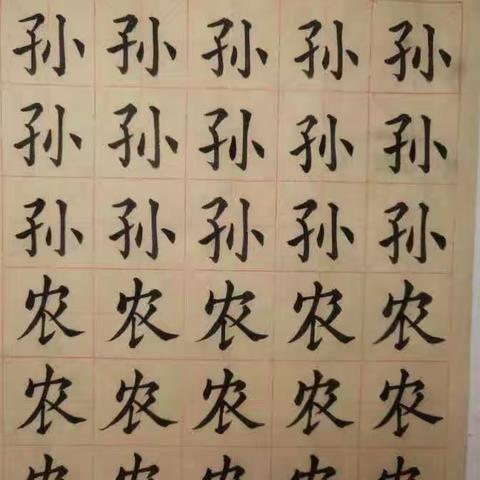 孙孙孙孙孙
孙孙孙孙孙
孙孙孙孙孙
农农农农农
农农农农农